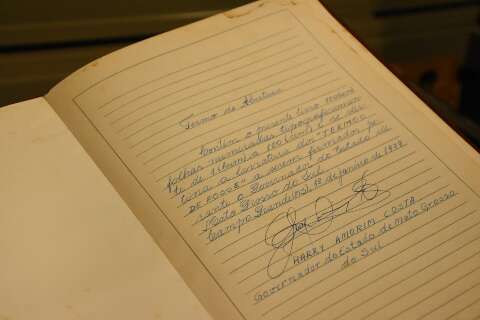 Termo de Abertura
Contém o presente livro
folhas numeradas tipograficamen-
te de 1 (um) a 100 (cento) e se des-
tina a lavratura dos "TERMOS
DE POSSE" a serem firmados pe-
rante o Governador do Estado de
Mato Grosso do Sul
Campo Grande (MS), 1º de janeiro de 1979
HARRY AMORIM COSTA
Governador do Estado de Mato Grosso
do Sul